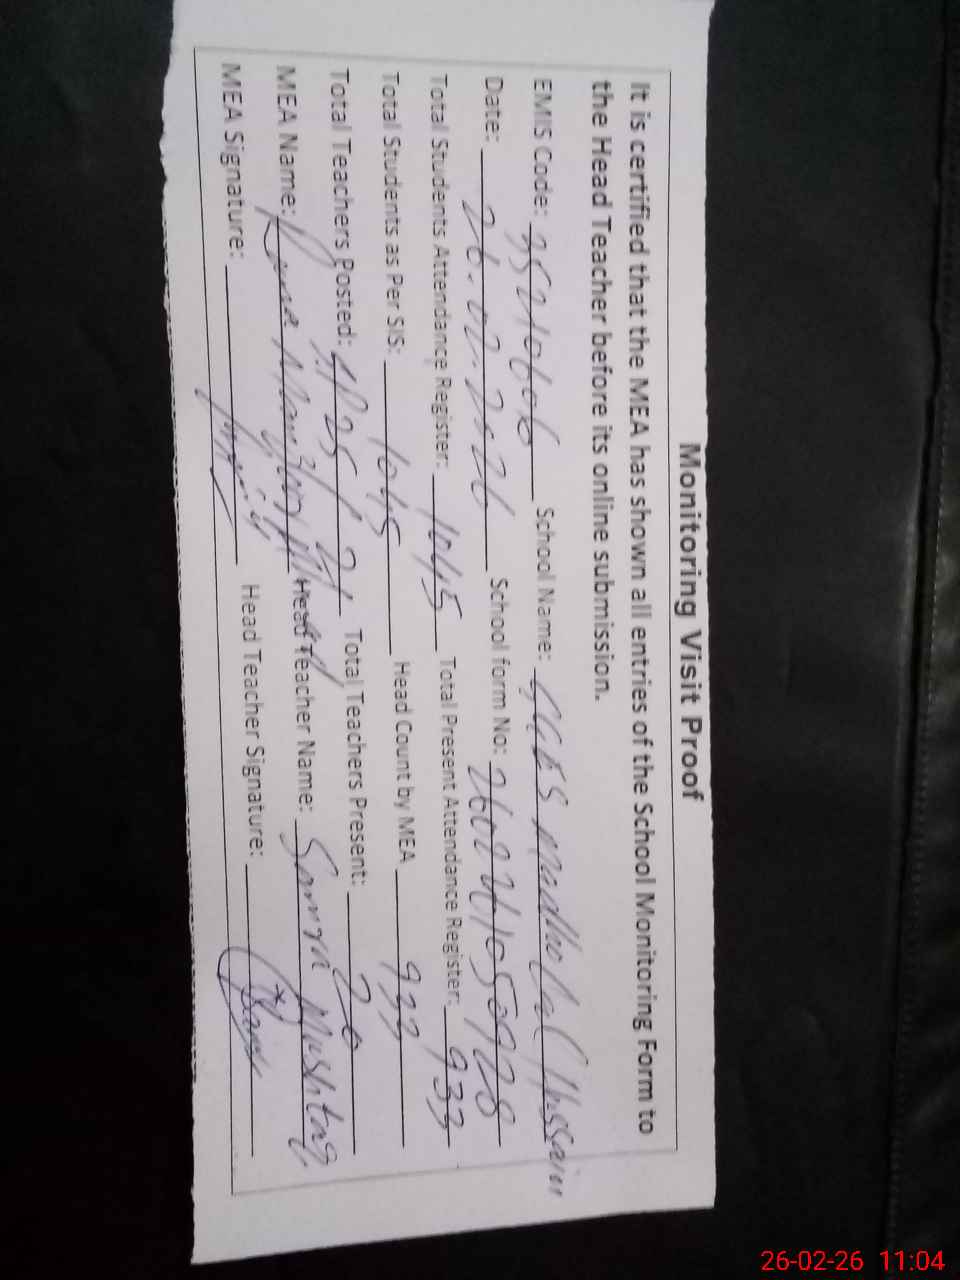 Monitoring Visit Proof
It is certified that the MEA has shown all entries of the School Monitoring Form to
the Head Teacher before its online submission.
EMIS Code: 35210606 School Name: GGES Madho Lal Hussain
Date: 26.02.2026 School form No:
Total Students Attendance Register: 1045 Total Present Attendance Register: 933
Total Students as Per SIS: 1045 Head Count by MEA 933
Total Teachers Posted: 25 / 21 Total Teachers Present: 20
MEA Name: Rana Head Teacher Name: Samra Mushtaq
MEA Signature: Head Teacher Signature:
26-02-26 11:04